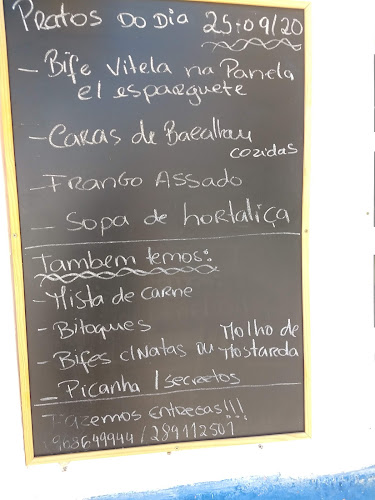 Pratos do Dia 25:09/20
- Bife Vitela na Panela
c/ esparguete
- Caras de Bacalhau
cozidas
- Frango Assado
- Sopa de hortaliça
Tambem temos:
- Mista de carne
- Bitoques
- Bifes c/Natas ou Molho de Mostarda
- Picanha / secretos
Fazemos entregas!!!
968649944 / 289112501